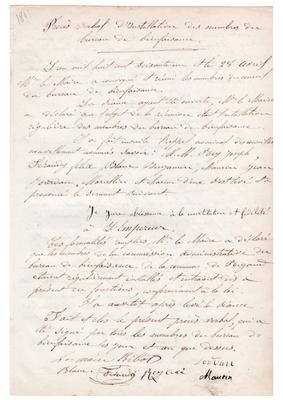 Procès verbal d'Installation des membres du
bureau de bienfaisance.
L'an mil huit cent soixante et le 28 avril
Mr le Maire a convoqué et réuni les membres du
du bureau de bienfaisance.
La séance ayant été ouverte, Mr le Maire
a déclaré que l'objet de la réunion était l'installation
régulière des membres du bureau de bienfaisance.
Il a fait ensuite l'appel nominal des
nouvellement nommés savoir: M.M. Rey Joseph,
Ferandy félix, Blanc Benjamin, Maurin Jean
et
prononcé le serment suivant.
Je jure obéissance à la constitution et fidélité
à l'Empereur.
Ces formalités remplies, Mr le Maire a déclaré
que les membres de la commission administrative du
bureau de bienfaisance de la commune de
étaient régulièrement installés et entraient dès à
présent en fonctions, conformément à la loi
On a ensuite levé la séance
Fait et clos le présent procès verbal, qui a
été signé par tous les membres du bureau de
bienfaisance les jour et an que dessus.
Le maire
Blanc Ferandy Rey
Maurin